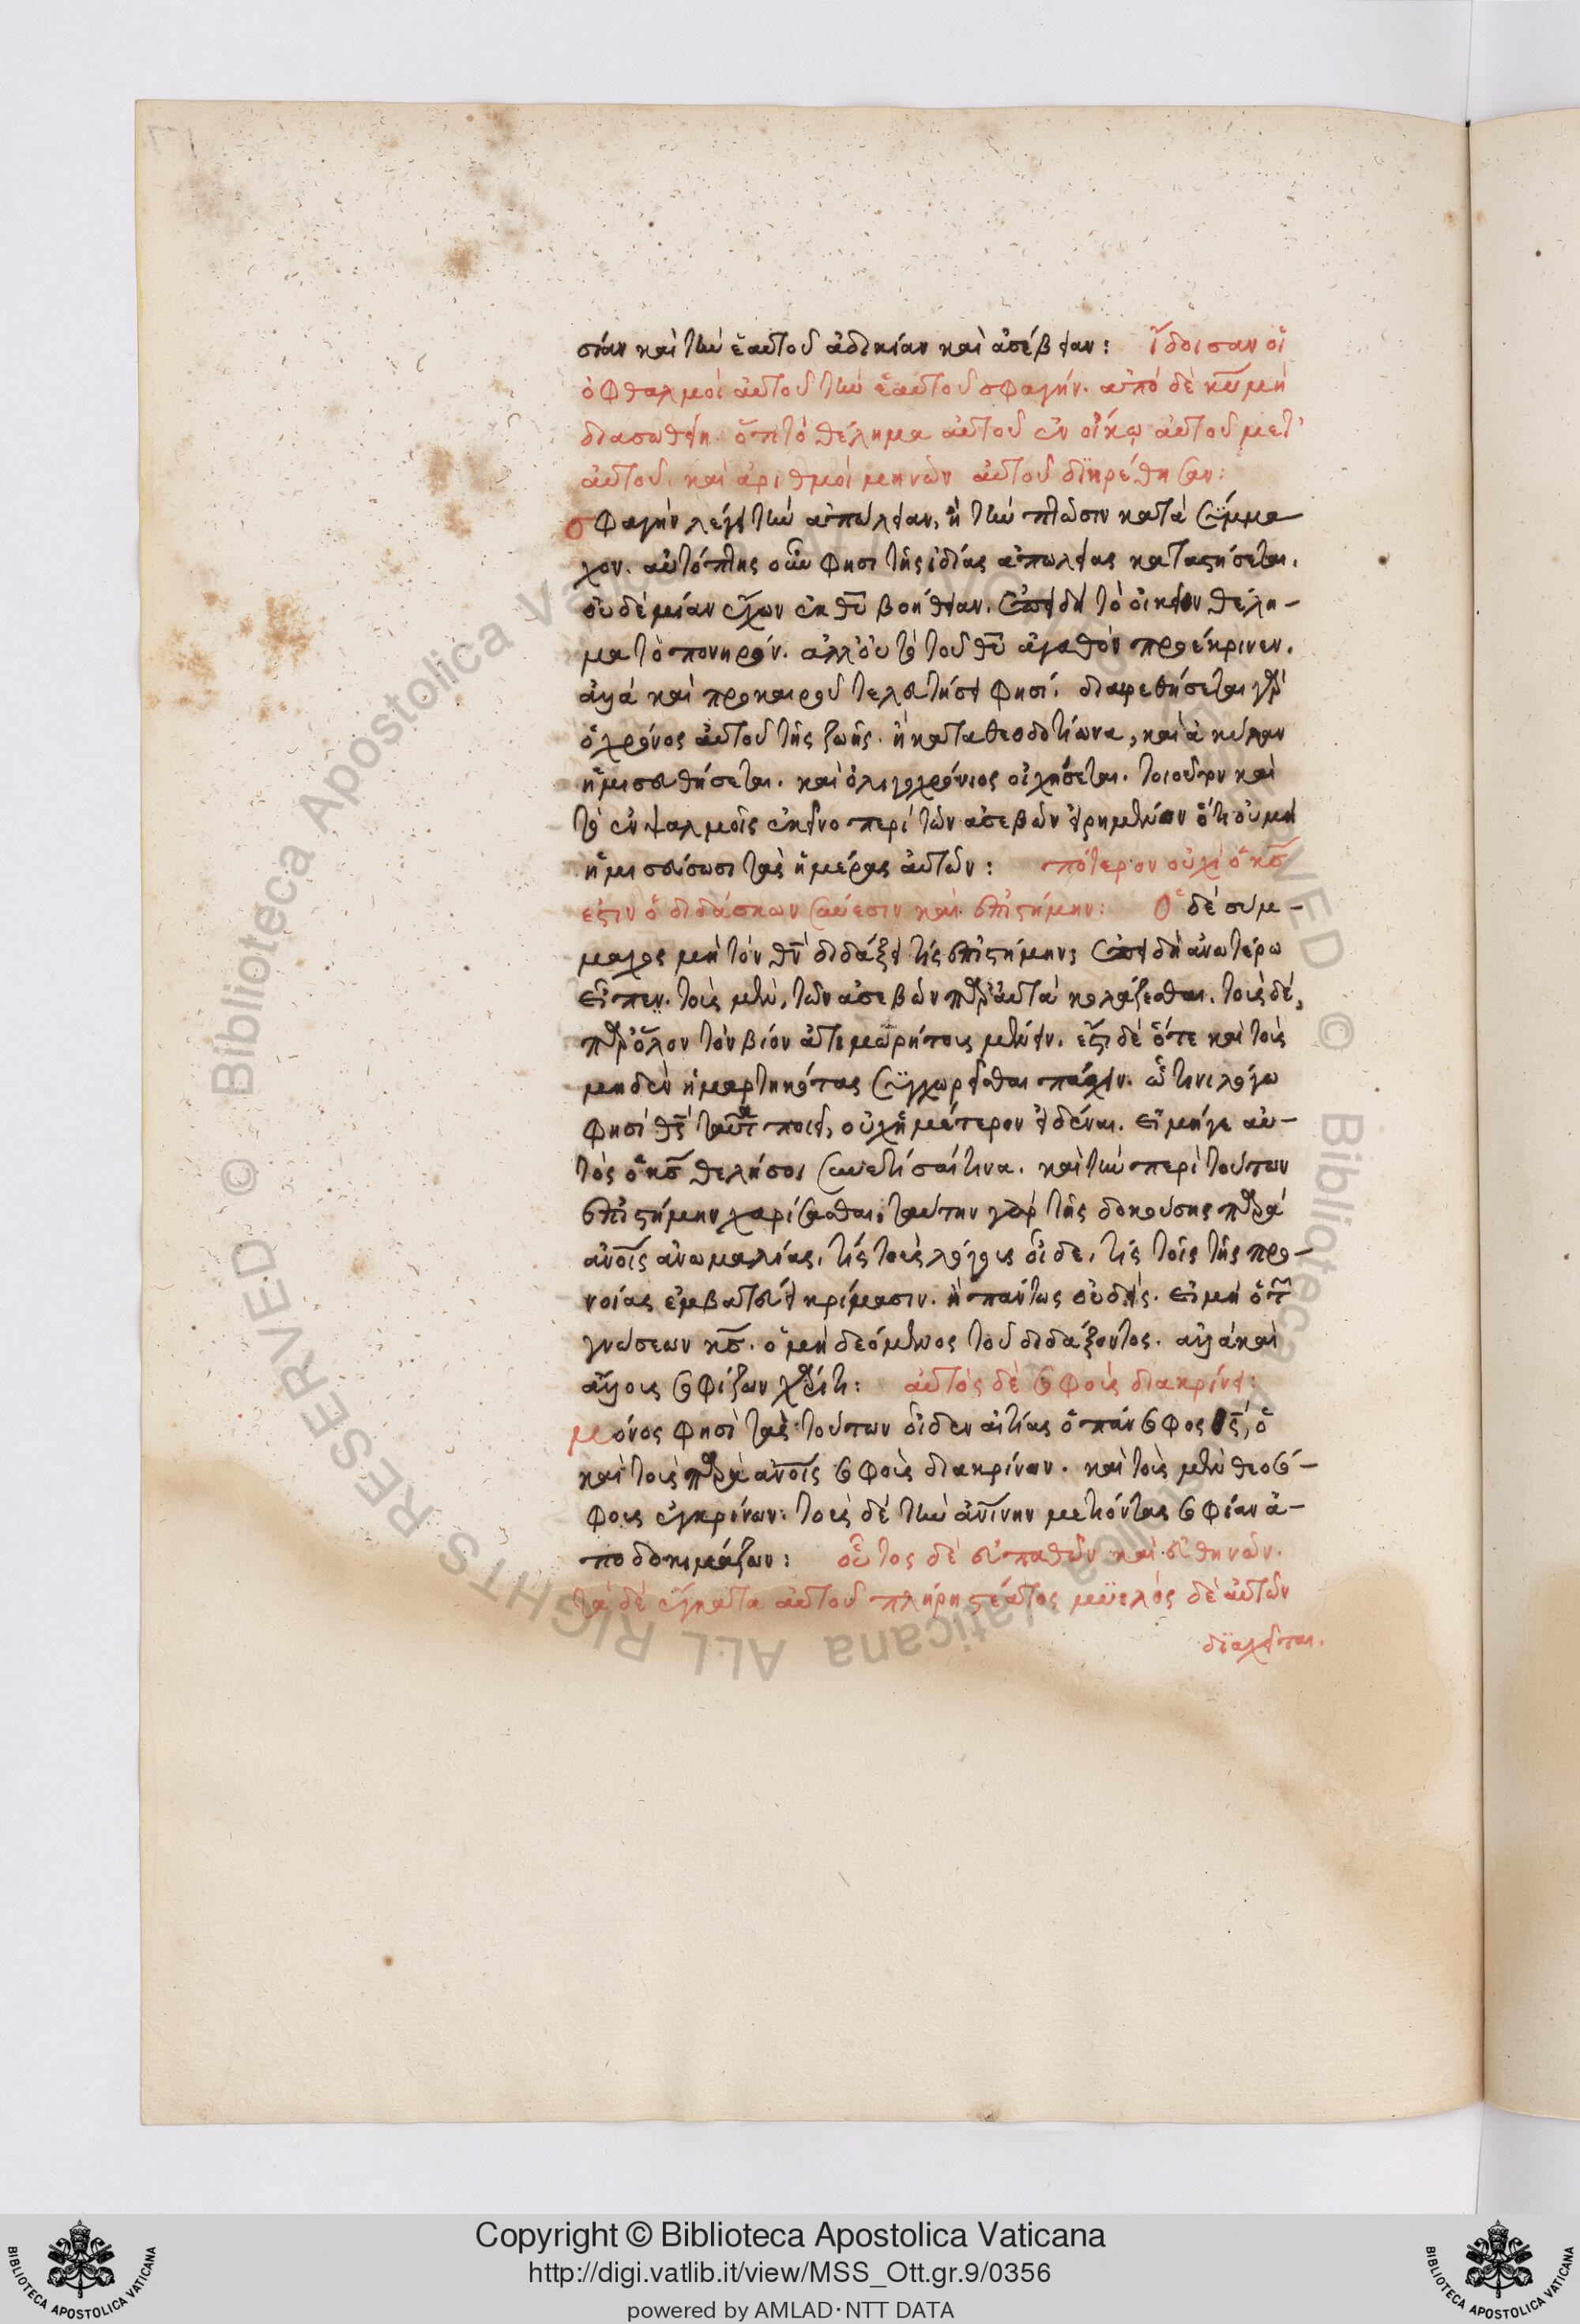 σίαν καὶ τὴν ἑαυτοῦ ἀδικίαν καὶ ἀσέβειαν: ἴδοισαν οἱ
ὀφθαλμοὶ αὐτοῦ τὴν ἑαυτοῦ σφαγήν. ἀπὸ δὲ κ̅υ̅ μὴ
διασωθείη. ὅτι τὸ θέλημα αὐτοῦ ἐν οἴκῳ αὐτοῦ μετ'
αὐτοῦ. καὶ ἀριθμοὶ μηνῶν αὐτοῦ διηρέθησαν:
σφαγὴν λέγει τὴν ἀπώλειαν, ἢ τὴν πτῶσιν κατὰ σύμμα
χον. αὐτόπτης οὖν φησι τῆς ἰδίας ἀπωλείας καταστήσεται.
οὐδεμίαν ἔχων ἐκ θ̅υ̅ βοήθειαν. ἐπειδὴ τὸ οἰκεῖον θέλη-
μα τὸ πονηρόν. ἀλλ' οὐ τὸ τοῦ θ̅υ̅ ἀγαθὸν προέκρινεν.
ἀλλὰ καὶ προκαιροῦ τελευτήσει φησί. διαιρεθήσεται γὰρ
ὁ χρόνος αὐτοῦ τῆς ζωῆς. ἢ κατα θεοδοτίωνα, καὶ
ἡμισευθήσεται. καὶ ὀλιγοχρόνιος οἰχήσεται. τοιοῦτον καὶ
τὸ ἐν ψαλμοῖς ἐκεῖνο περὶ τῶν ἀσεβῶν εἰρημένον ὅτι οὐ μὴ
ἡμισεύσωσι τὰς ἡμέρας αὐτῶν: πότερον οὐχὶ ὁ κ̅ς̅
ἐστιν ὁ διδάσκων σύνεσιν καὶ ἐπιστήμην: Ὁ δὲ σύμ-
μαχος μὴ τὸν θ̅ν̅ διδάξει τίς ἐπιστήμην; ἐπειδὴ ἀνωτέρω
εἶπεν. τοὺς μὲν, τῶν ἀσεβῶν παρ' αὐτὰ κολάζεσθαι. τοὺς δέ,
παρ' ὅλον τὸν βίον ἀτιμωρήτους μένειν. ἔστι δὲ ὅτε καὶ τοὺς
μηδὲν ἡμαρτηκότας συγχωρεῖσθαι πάσχειν. ᾧ τινι λόγῳ
φησὶ θ̅ς̅ ταῦτα ποιεῖ, οὐχ ἡμέτερον εἰδέναι. εἰ μήγε αὐ-
τὸς ὁ κ̅ς̅ θελήσοι συνετίσαί τινα. καὶ τὴν περὶ τούτων
ἐπιστήμην χαρίσασθαι. ταύτην γὰρ τῆς δοκούσης παρὰ
ἀν̅ο̅ι̅ς̅ ἀνωμαλίας. τίς τοὺς λόγους οἶδε. τίς τοῖς τῆς προ-
νοίας ἐμβατεύει κρίμασιν. ἢ πάντως οὐδείς. εἰ μὴ ὁ τῶν
γνώσεων κ̅ς̅. ὁ μὴ δεόμενος τοῦ διδάξοντος. ἀλλὰ καὶ
ἄλλους σοφίζων χάριτι: αὐτὸς δὲ σοφοὺς διακρίνει:
μόνος φησὶ τὰς τούτων οἶδεν αἰτίας ὁ πάνσοφος ὁ
καὶ τοὺς παρὰ ἀν̅ο̅ι̅ς̅ σοφοὺς διακρίνων. καὶ τοὺς μὲν θεοσό-
φους ἐγκρίνων. τοὺς δὲ τὴν ἀν̅ι̅νην μετιόντας σοφίαν ἀ-
ποδοκιμάζων: οὗτος δὲ εὐπαθῶν καὶ εὐθηνῶν.
τὰ δὲ ἔγκατα αὐτοῦ πλήρη στέατος μυελὸς δὲ αὐτῶν
διαχεῖται.
Copyright © Biblioteca Apostolica Vaticana
http://digi.vatlib.it/view/MSS_Ott.gr.9/0356
powered by AMLAD·NTT DATA